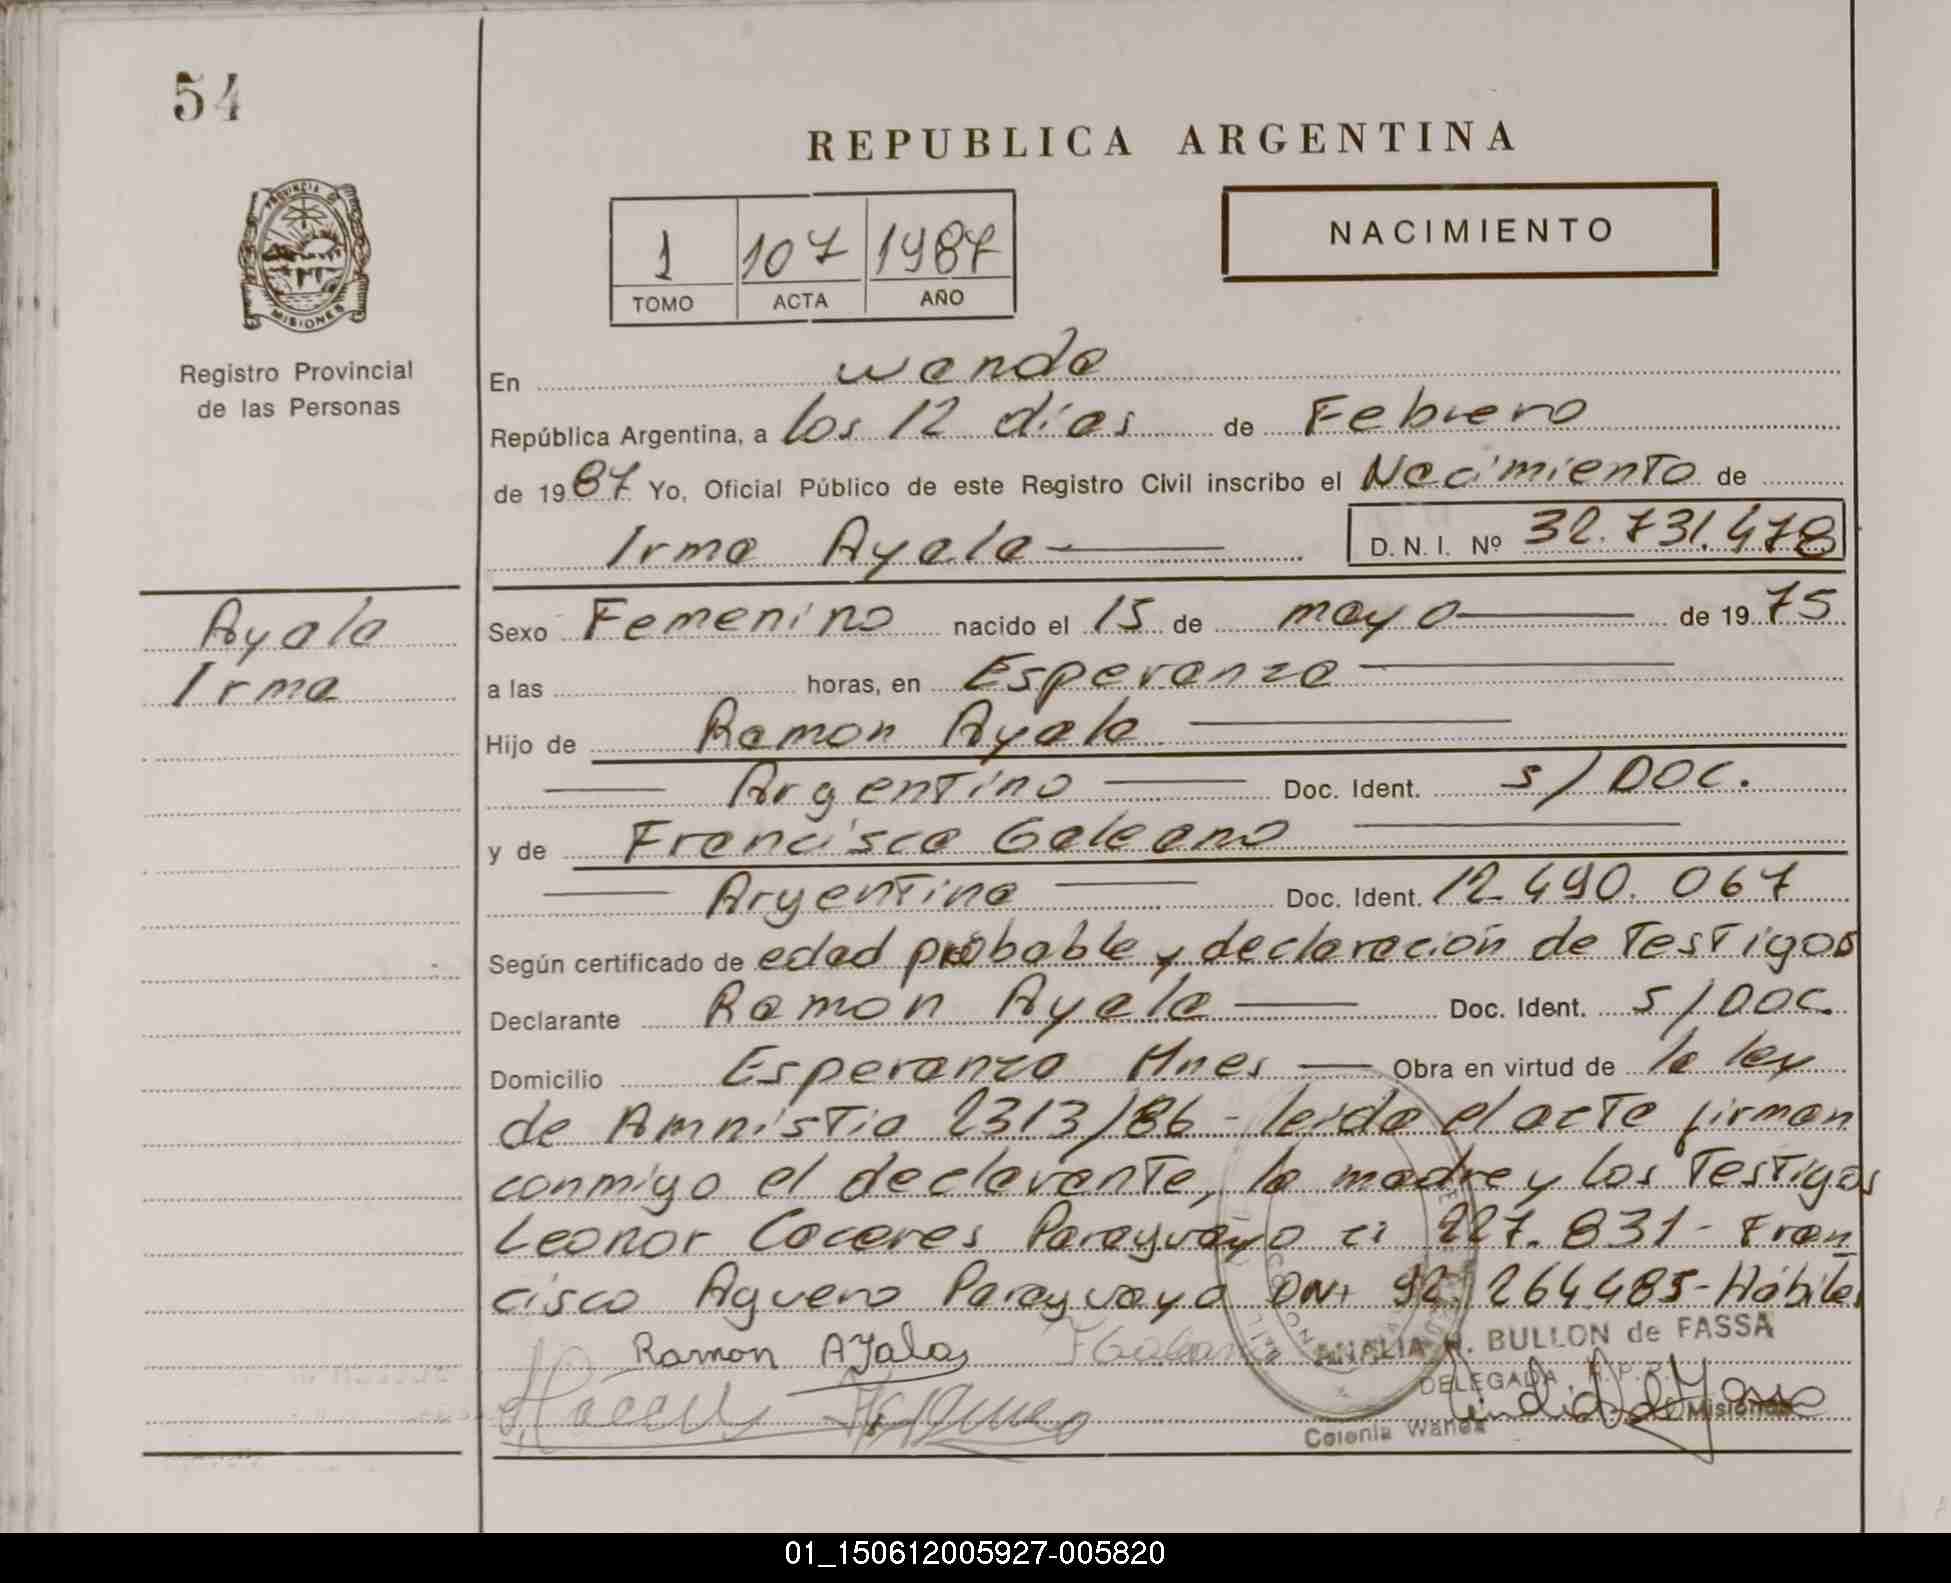 54
REPUBLICA ARGENTINA
PROVINCIA DE
MISIONES
1 107 1987
TOMO ACTA AÑO
NACIMIENTO
Registro Provincial
de las Personas
En wanda
República Argentina, a los 12 días de Febrero
de 1987 Yo, Oficial Público de este Registro Civil inscribo el Nacimiento de
Irma Ayala
D. N. I. Nº 32.731.478
Ayala
Irma
Sexo Femenino nacido el 15 de mayo de 1975
a las horas, en Esperanza
Hijo de Ramon Ayala
Argentino Doc. Ident. s/DOC.
y de Francisca Galeano
Argentina Doc. Ident. 12.490.067
Según certificado de edad probable y declaración de Testigos
Declarante Ramon Ayala Doc. Ident. s/DOC.
Domicilio Esperanza Mnes Obra en virtud de la ley
de Amnistia 2313/86 - leida el acta firman
conmigo el declarante, la madre y los Testigos
Leonor Caceres Paraguayo ci 227.831 - Fran
cisco Aguero Paraguayo DNI 92.264485 - Hábiles
Ramon AYala
ANALIA H. BULLON de FASSA
DELEGADA R.P.P.
Colonia Wanda Misiones
01_150612005927-005820